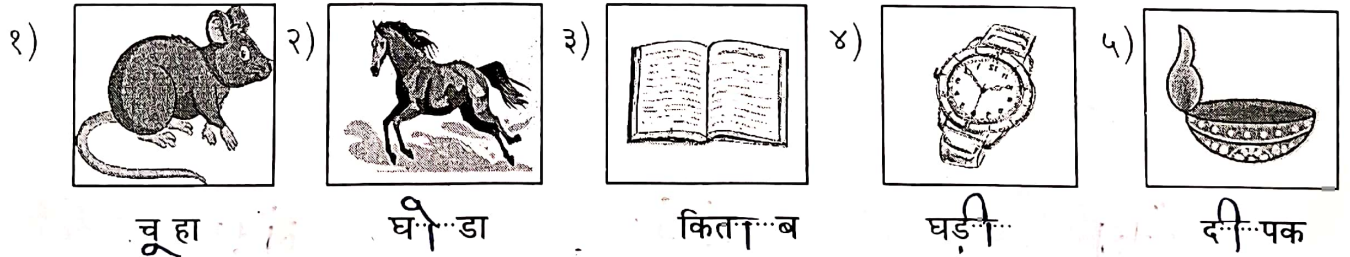 १) २) ३) ४) ५)
चूहा घोडा किताब घड़ी दीपक